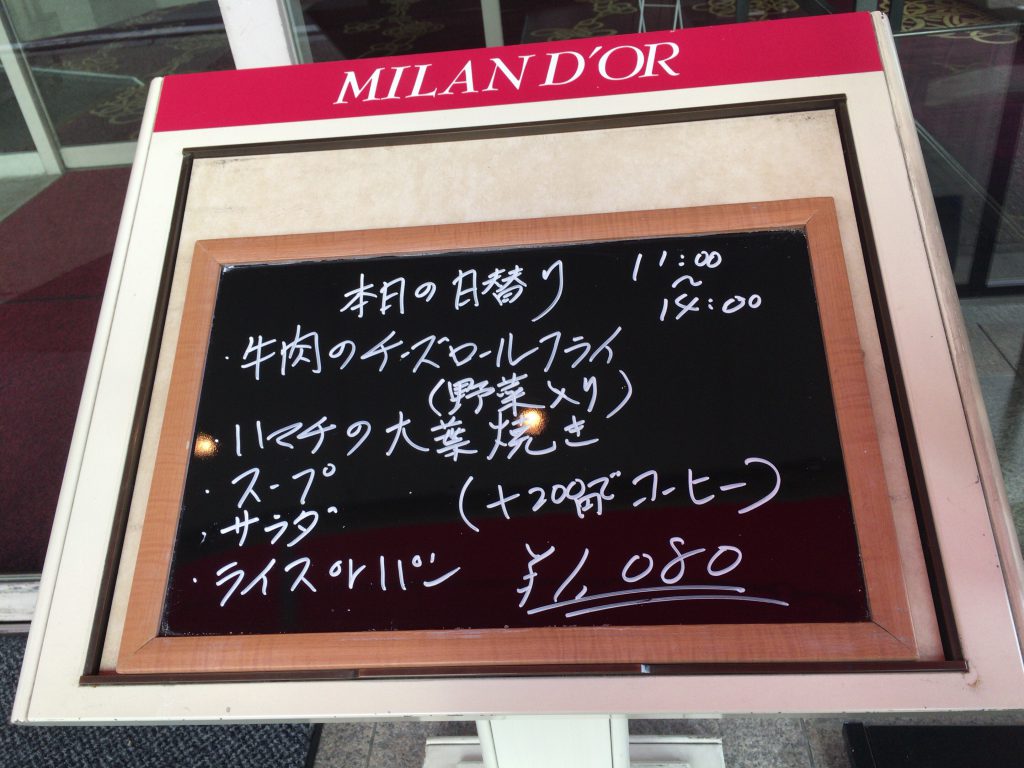 MILAN D'OR
本日の日替り 11:00
〜
14:00
・牛肉のチーズロールフライ
(野菜入り)
・ハマチの大葉焼き
・スープ
・サラダ (+200円でコーヒー)
・ライス or パン ¥1,080